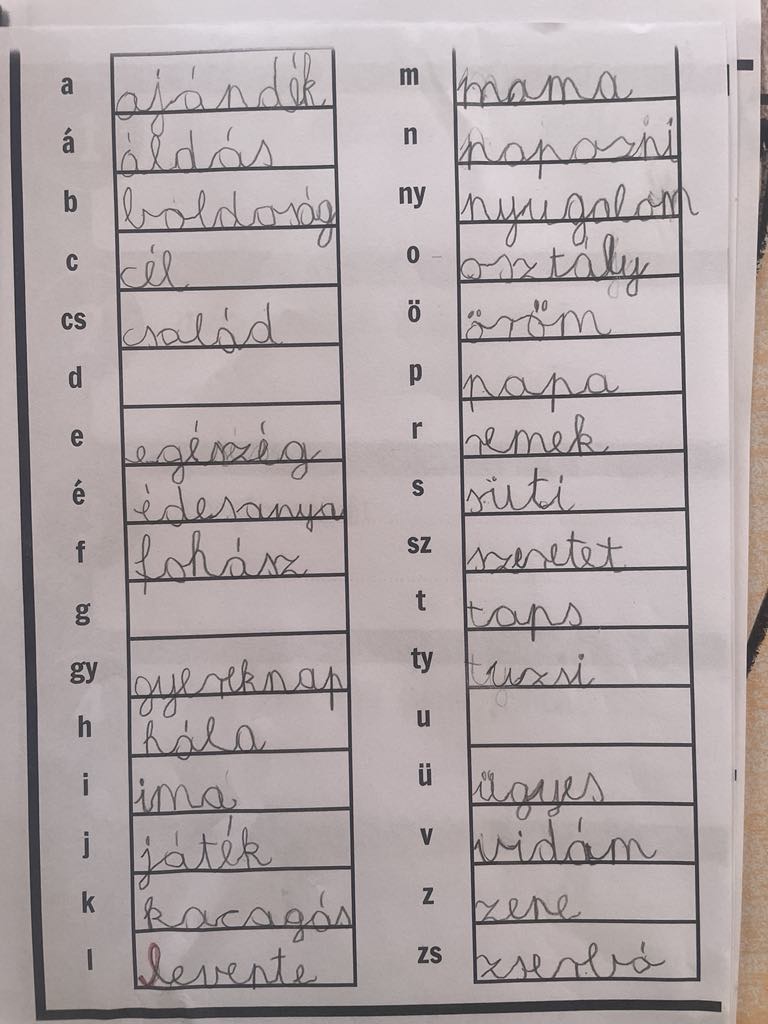 a ajándék
á áldás
b boldoság
c cél
cs család
d
e egészég
é édesanya
f fohász
g
gy gyereknap
h hála
i ima
j játék
k kacagás
l levente
m mama
n napozni
ny nyugalom
o osztály
ö öröm
p papa
r remek
s süti
sz szeretet
t taps
ty tyuzsi
u
ü ügyes
v vidám
z zene
zs zserbó